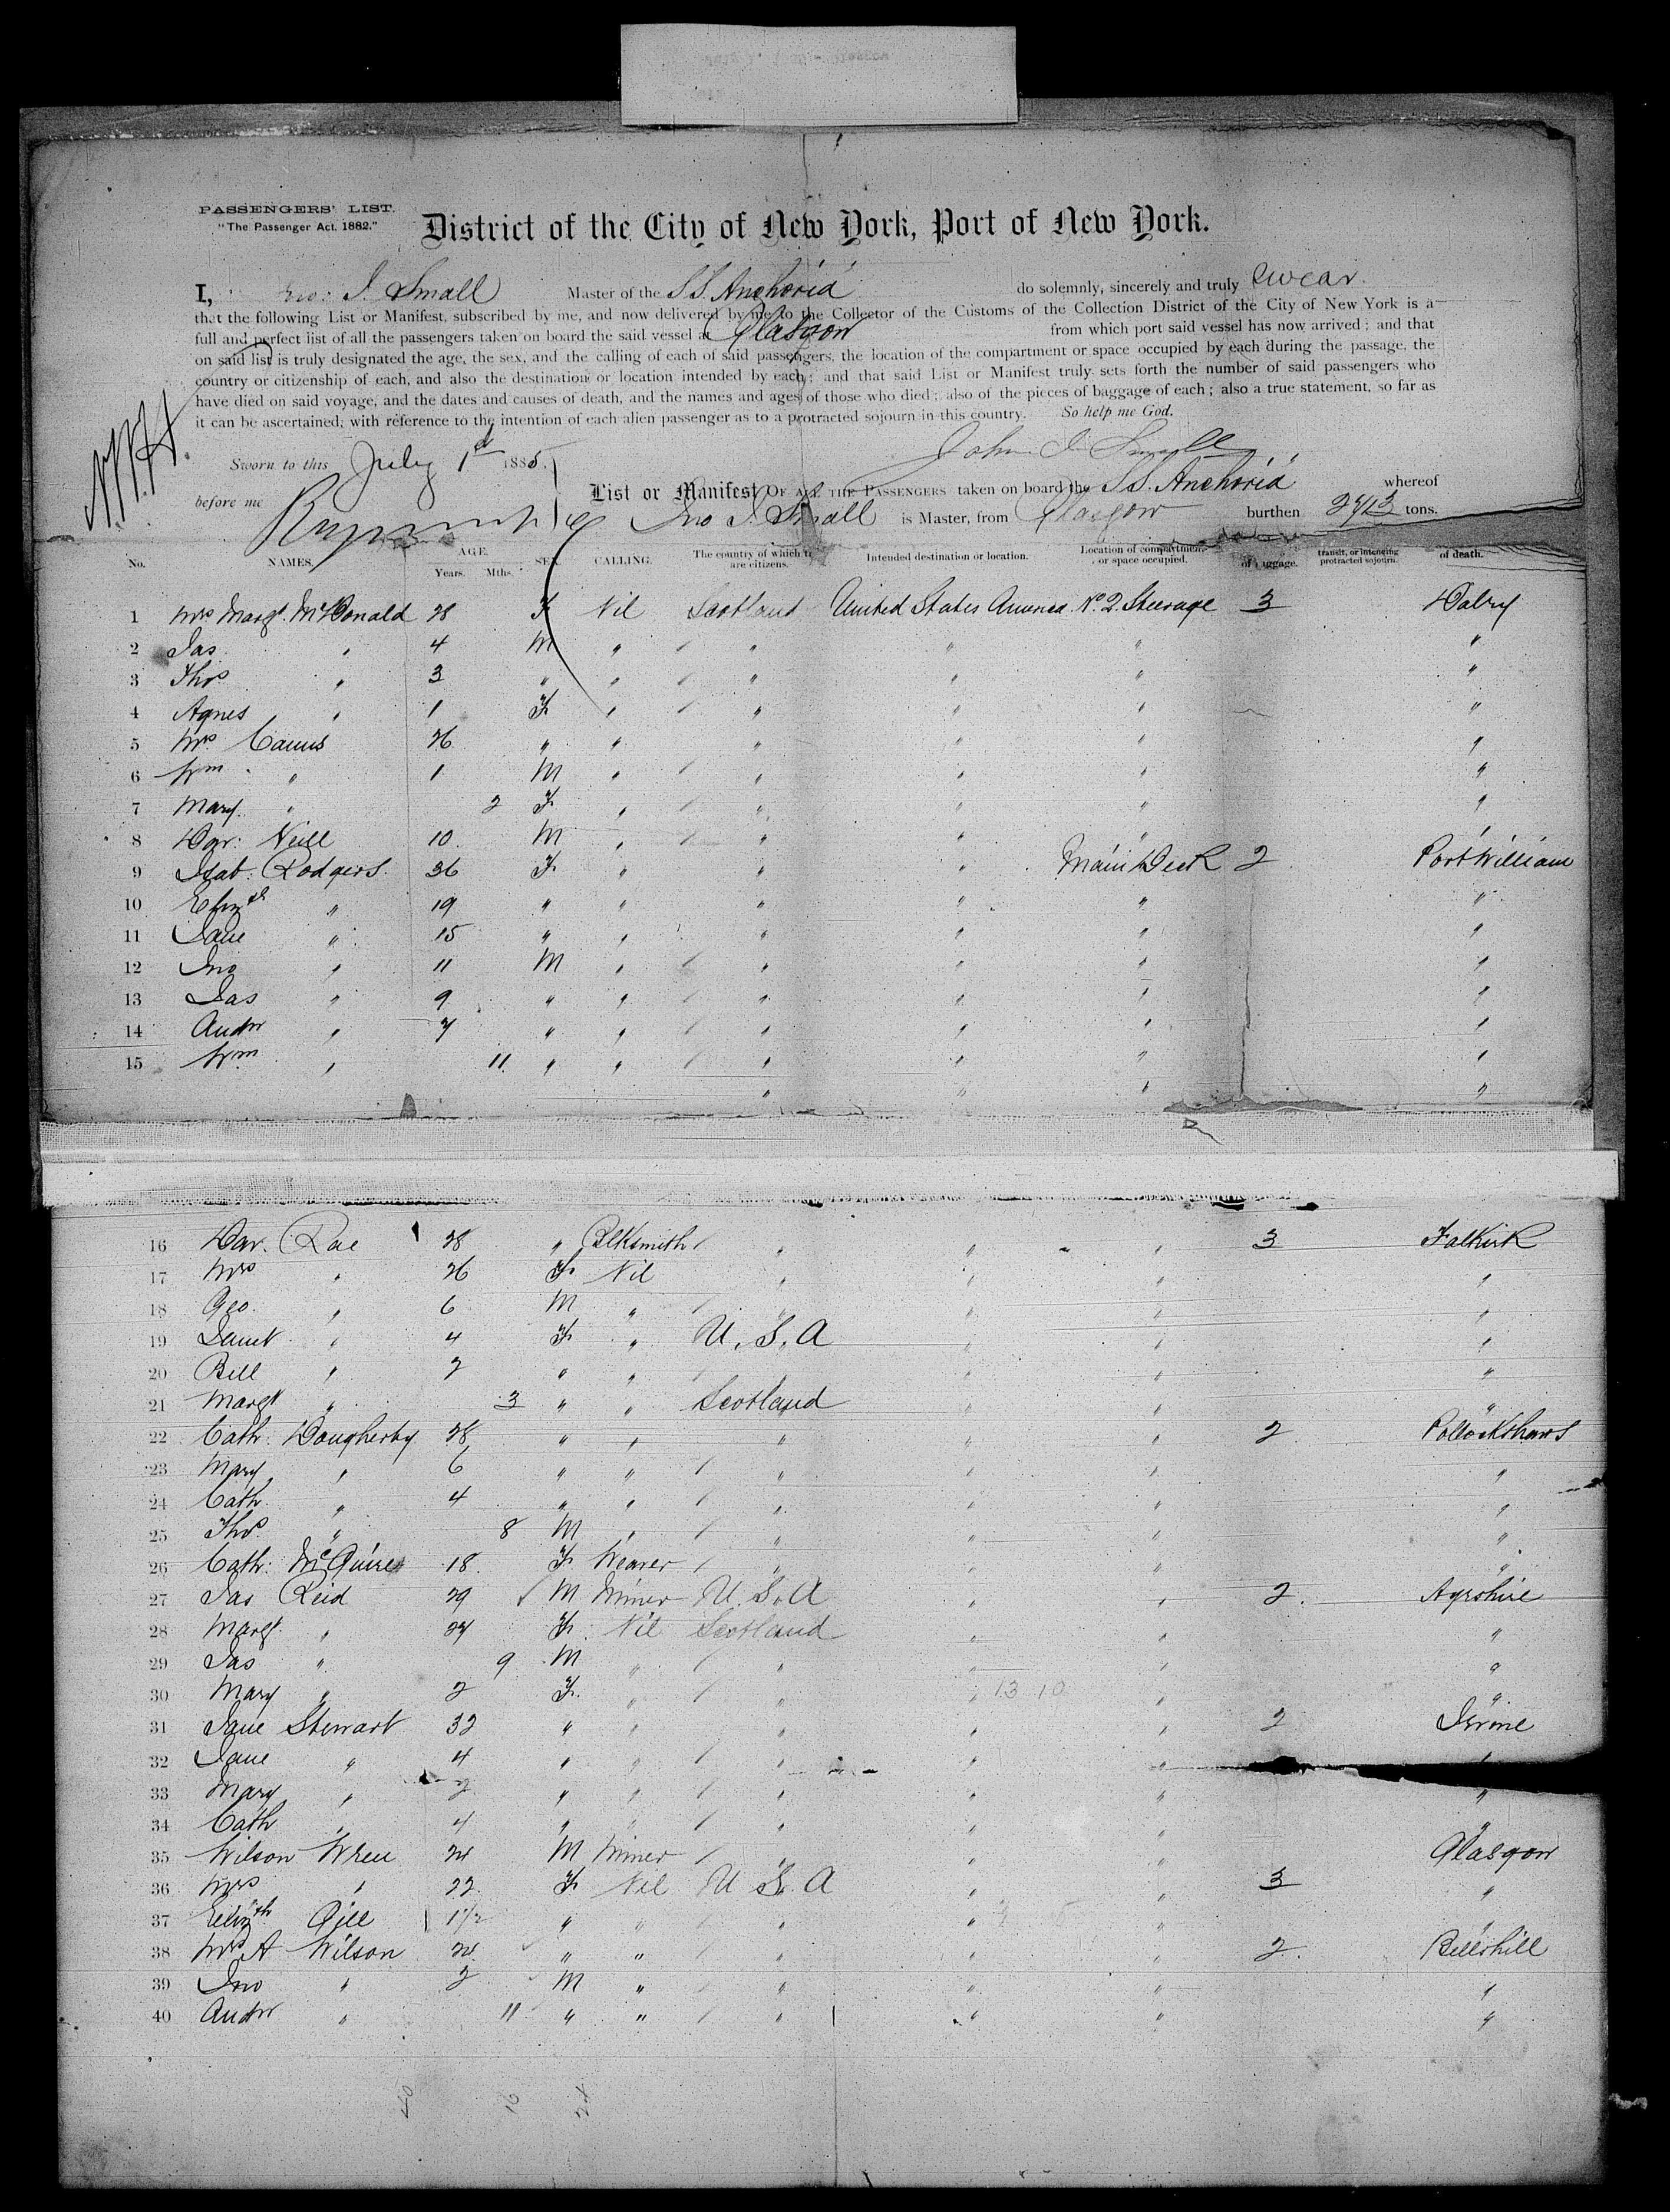 PASSENGERS' LIST.
"The Passenger Act, 1882."
District of the City of New York, Port of New York.
I, Jno: I. Small Master of the SS Anchoria do solemnly, sincerely and truly Swear
that the following List or Manifest, subscribed by me, and now delivered by me to the Collector of the Customs of the Collection District of the City of New York is a
full and perfect list of all the passengers taken on board the said vessel at Glasgow from which port said vessel has now arrived; and that
on said list is truly designated the age, the sex, and the calling of each of said passengers, the location of the compartment or space occupied by each during the passage, the
country or citizenship of each, and also the destination or location intended by each; and that said List or Manifest truly sets forth the number of said passengers who
have died on said voyage, and the dates and causes of death, and the names and ages of those who died; also of the pieces of baggage of each; also a true statement, so far as
it can be ascertained, with reference to the intention of each alien passenger as to a protracted sojourn in this country. So help me God.
John I. Small
Sworn to this July 1st 1885.
before me
List or Manifest OF ALL THE PASSENGERS taken on board the SS. Anchoria whereof
Jno I. Small is Master, from Glasgow burthen 2713 tons.
No. NAMES. AGE. Years. Mths. SEX. CALLING. The country of which they are citizens. Intended destination or location. Location of compartment or space occupied. of luggage. transit, or intending protracted sojourn. of death.
1 Mrs Margt. McDonald 28 F Nil Scotland United States America No. 2 Steerage 3 Dalry
2 Jas " 4 M " " " " "
3 Thos " 3 " " " " " "
4 Agnes " 1 F " " " " "
5 Mrs 26 " " " " " "
6 Wm " 1 M " " " " "
7 Mary " 2 F " " " " "
8 Dav: Neill 10 M " " " " "
9 Isab: Rodgers 36 F " " " Main Deck 2 Port William
10 Elizth " 19 " " " " " "
11 Jane " 15 " " " " " "
12 Jno " 11 M " " " " "
13 Jas " 9 " " " " " "
14 Andw " 7 " " " " " "
15 Wm " 11 " " " " " "
" " " "
16 Dav. Rae 28 " Blksmith " " " 3 Falkirk
17 Mrs " 26 F Nil " " " "
18 Geo. " 6 M " " " " "
19 Janet " 4 F " U.S.A " " "
20 Bell " 2 " " " " "
21 Margt " 3 " " Scotland " " "
22 Cath: Dougherty 28 " " " " " 2 Pollockshaws
23 Mary " 6 " " " " " "
24 Cath " 4 " " " " " "
25 Thos " 8 M " " " " "
26 Cath: McGuire 18 F Weaver " " " "
27 Jas Reid 29 M Miner U.S.A " " 2 Ayrshire
28 Margt " 27 F Nil Scotland " " "
29 Jas " 9 M " " " " "
30 Mary " 2 F " " " 13 10 " "
31 Jane Stewart 32 " " " " " 2 Irvine
32 Jane " 4 " " " " " "
33 Mary " 2 " " " " " "
34 Cath " 4 " " " " " "
35 Wilson Wren 24 M Miner " " " Glasgow
36 Mrs " 22 F Nil U.S.A " " 3 "
37 Elizth Gill 1 1/2 " " " " " "
38 Mrs A Wilson 24 " " " " " 2 Bellshill
39 Jno " 2 M " " " " "
40 Andw " 11 " " " " " "
40 16 24